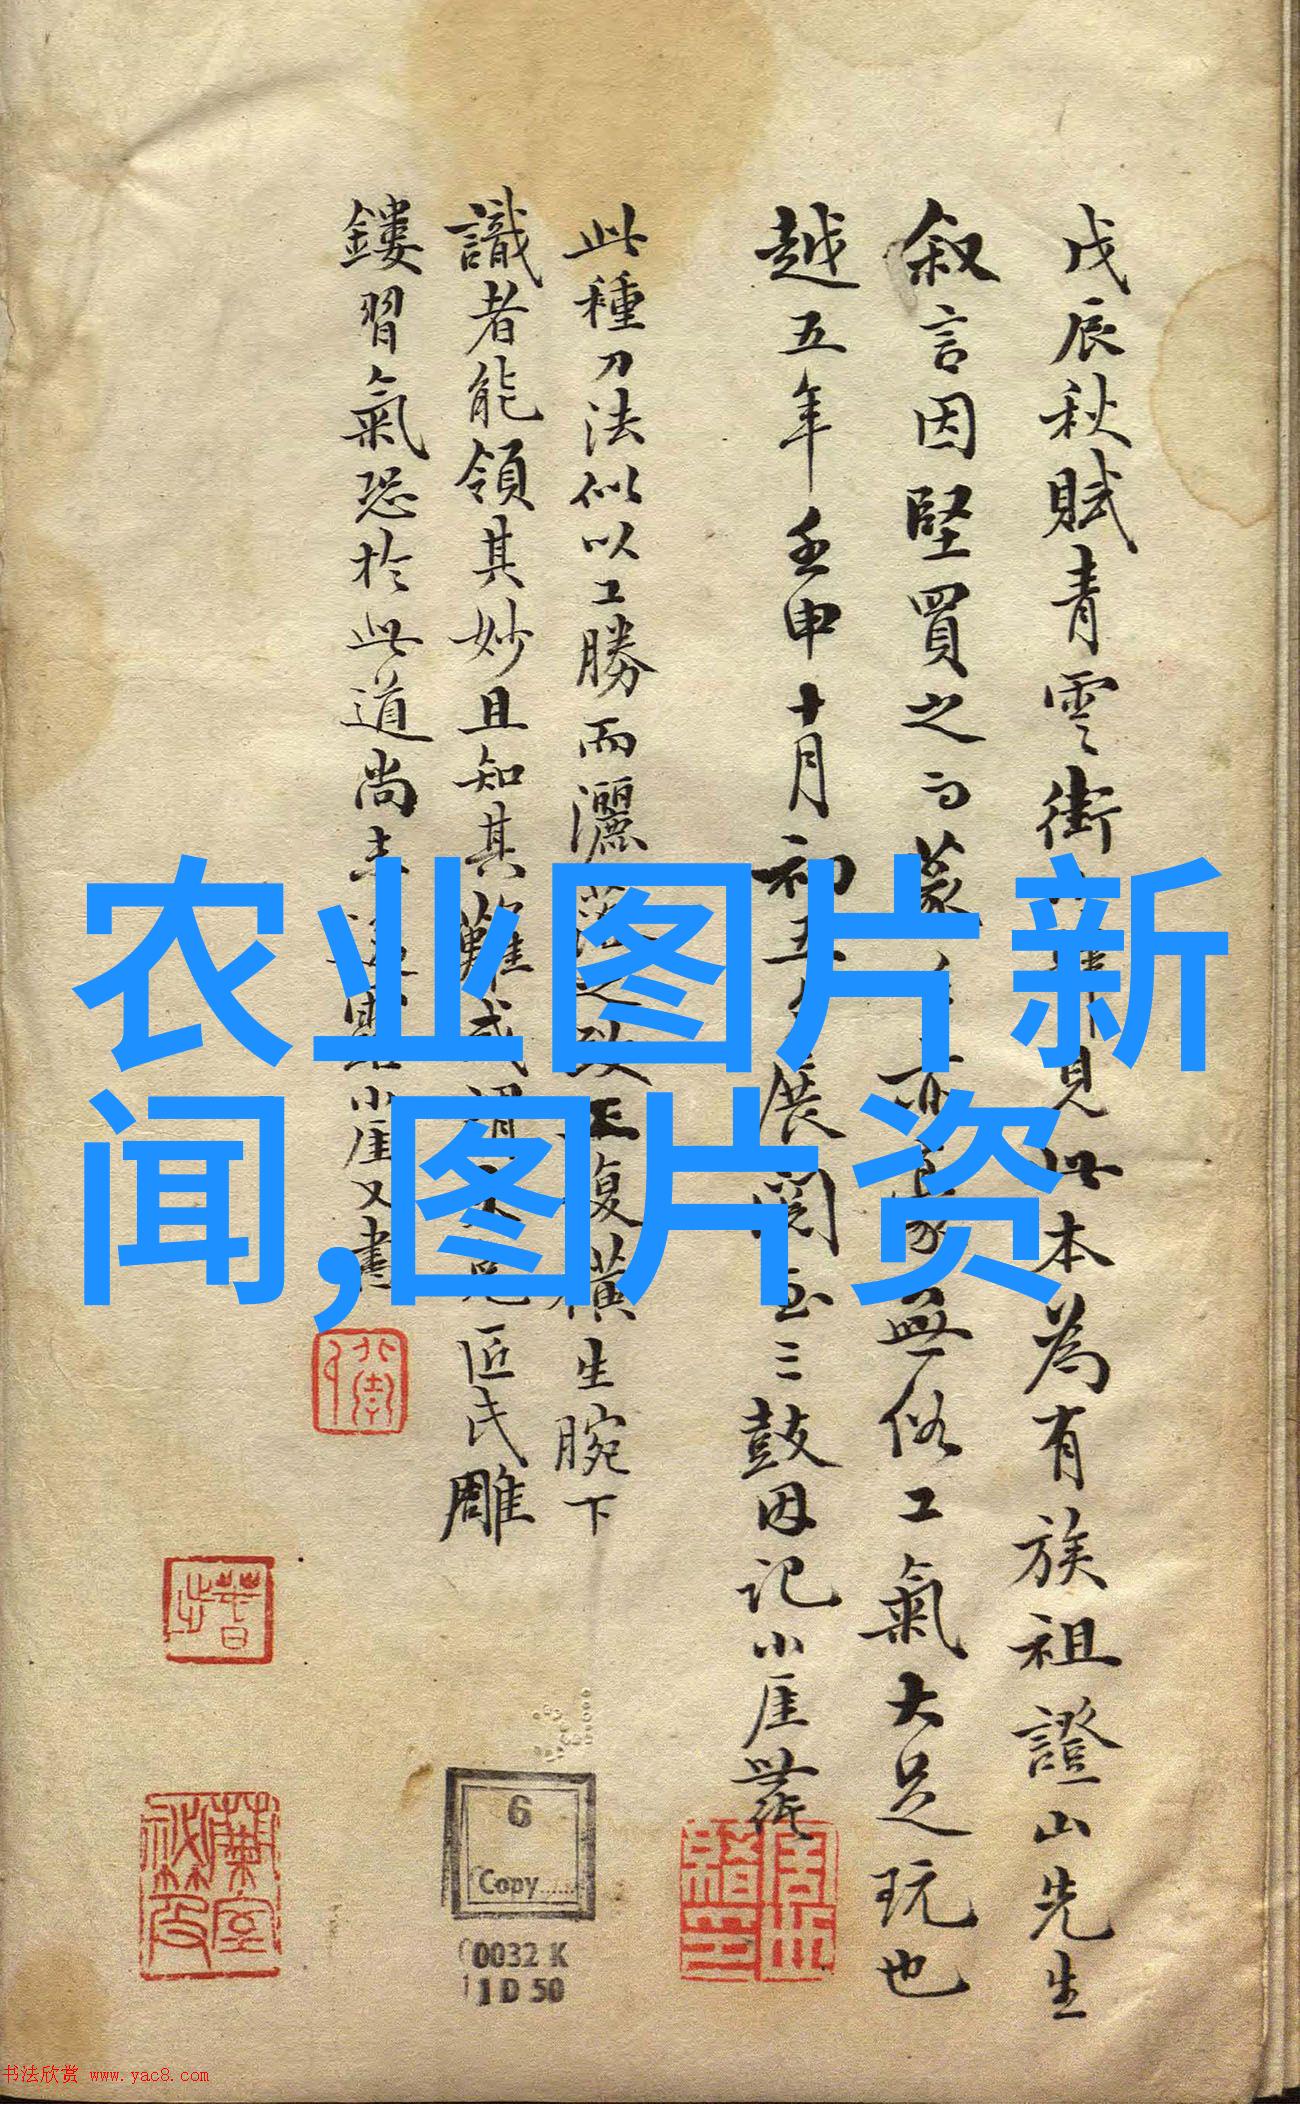 戊辰秋賦青雲街見此本為有族祖證山先生
叙言因堅買之蒙無俗工氣大足玩也
越五年壬申十月初五展閱至三鼓因記小厓
此種刀法似以工勝而灑落之致正復橫生腕下
識者能領其妙且知其難匠氏雕
鏤習氣恐於此道尚未小厓又書
农业图片新
闻,图片资
6
Copy......
0032 K
1 D 50
书法欣赏 www.yac8.com